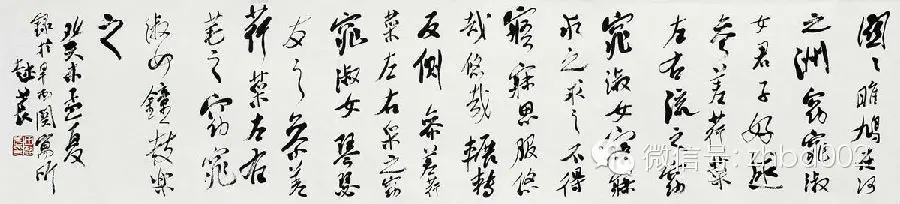 關々雎鳩在河
之洲窈窕淑
女君子好逑
參差荇菜
左右流之窈
窕淑女寤寐
求之求之不得
寤寐思服悠
哉悠哉輾轉
反側參差荇
菜左右采之窈
窕淑女琴瑟
友之參差
荇菜左右
芼之窈窕
淑女鐘鼓樂
之
癸未孟夏
錄於寓所
微信号: